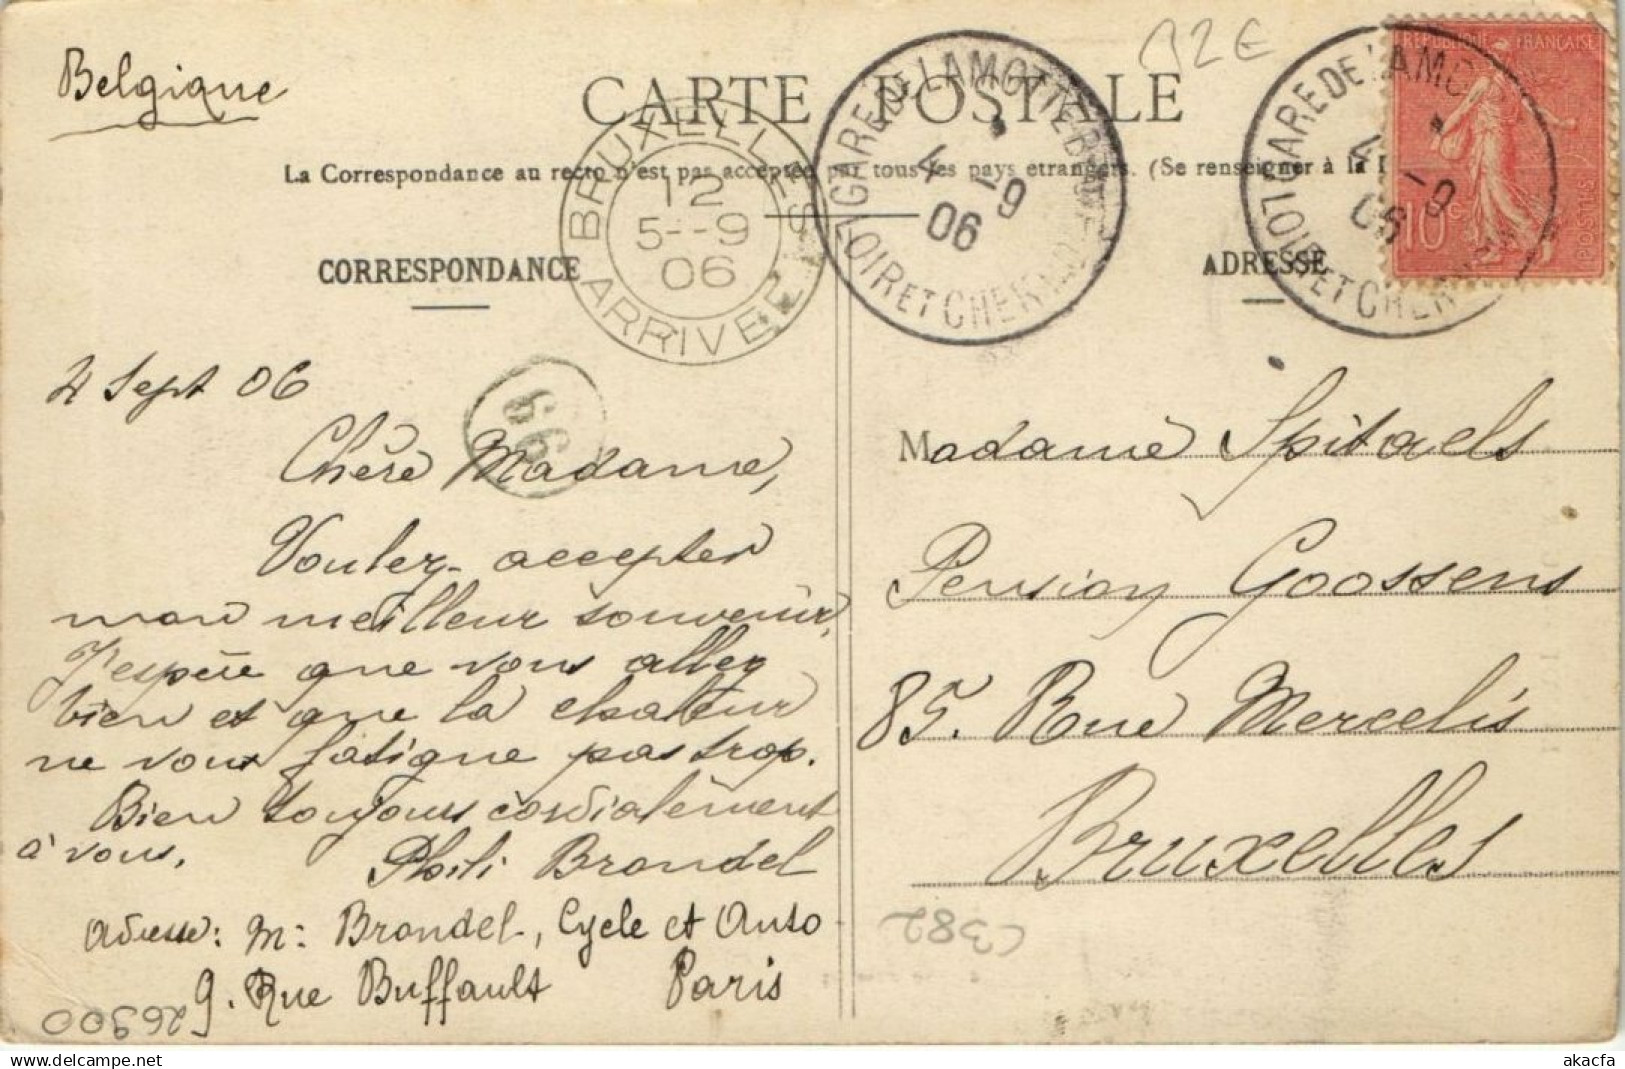 Belgique
CARTE POSTALE
La Correspondance au recto n'est pas acceptée par tous les pays etrangers. (Se renseigner à la
CORRESPONDANCE
ADRESSE
BRUXELLES
12
5--9
06
ARRIVEE
GARE DE LAMOTTE BEUVRON
4 -9
06
LOIR ET CHER
GARE DE LAMO
4 -9
06
LOIR ET CHER
REPUBLIQUE FRANCAISE
10c
POSTES
99
4 Sept 06
Chère Madame,
Voulez-accepter
mon meilleur souvenir,
J'espère que vous allez
bien et que la chaleur
ne vous fatigue pas trop.
Bien toujours cordialement
à vous.
Phili Brondel
Adresse: M: Brondel, Cycle et Auto
9. Rue Buffault Paris
Madame Spitaels
Pension Goossens
85. Rue Mercelis
Bruxelles
C382
26900
12E
akacfa